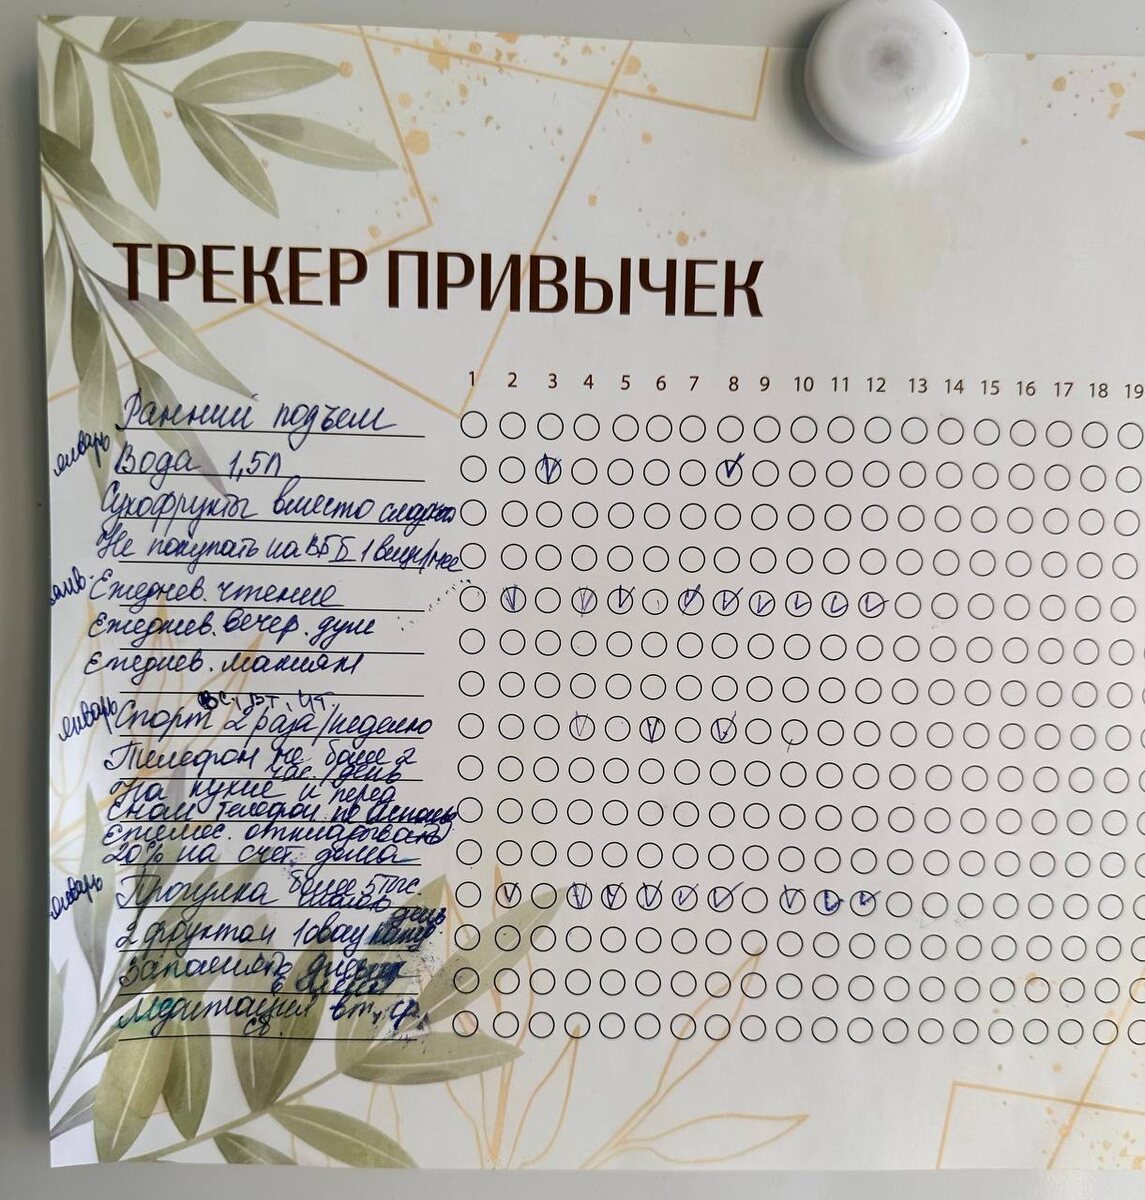 ТРЕКЕР ПРИВЫЧЕК
1 2 3 4 5 6 7 8 9 10 11 12 13 14 15 16 17 18 19
Ранний подъем
январь Вода 1,5л
Сухофрукты вместо
Не покупать на ВБ 1 вещи/мес
янв. Ежеднев. чтение
Ежеднев. вечер. душ
Ежеднев. макияж
вс, вт, чт.
январь Спорт 2 раза/неделю
Телефон не более 2
час./день
На кухне и перед
сном телефон не
Ежемес. откладывать
20% на счет дома
январь Прогулка более 5 тыс.
день
2 фрукта и 1 овощ
Заполнять
Медитация вт, ср,